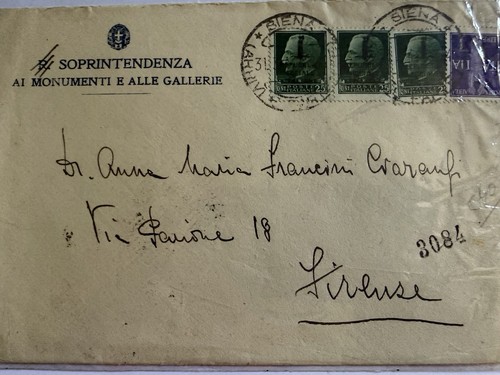 SOPRINTENDENZA
AI MONUMENTI E ALLE GALLERIE
SIENA
SIENA
31
Dr. Anna Maria Francini Ciaranfi
Via Pavione 18
3084
Firenze